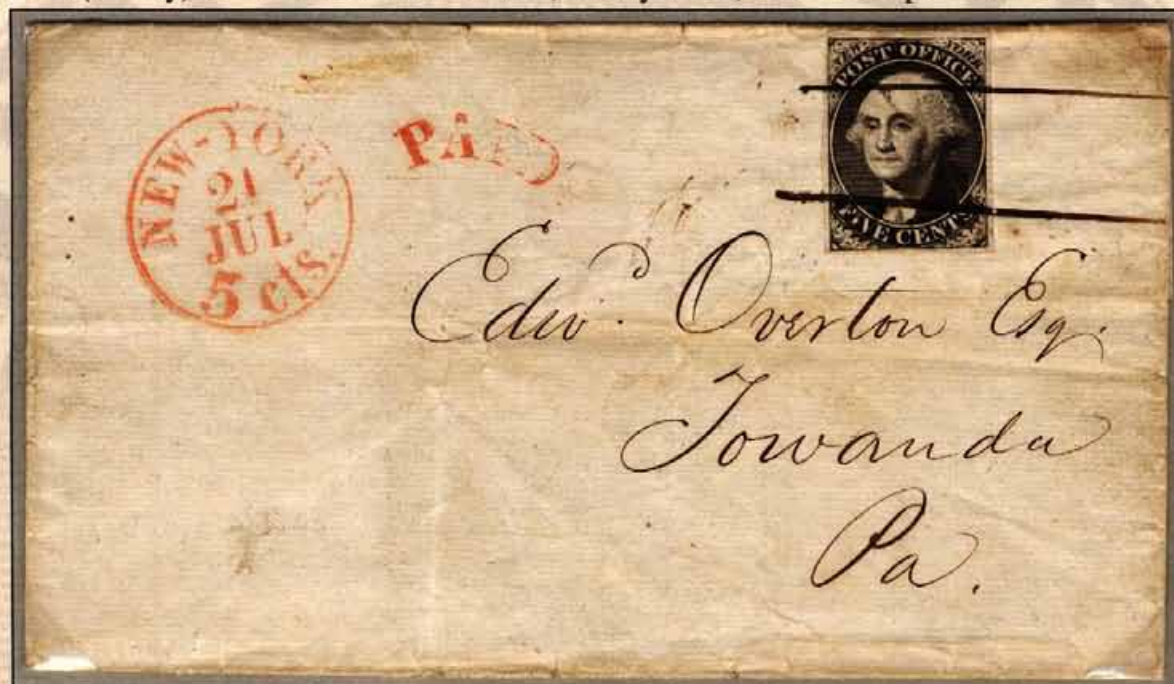 NEW-YORK
21
JUL
5 cts.
PAID
POST OFFICE
FIVE CENTS
Edwd. Overton Esq.
Towanda
Pa.